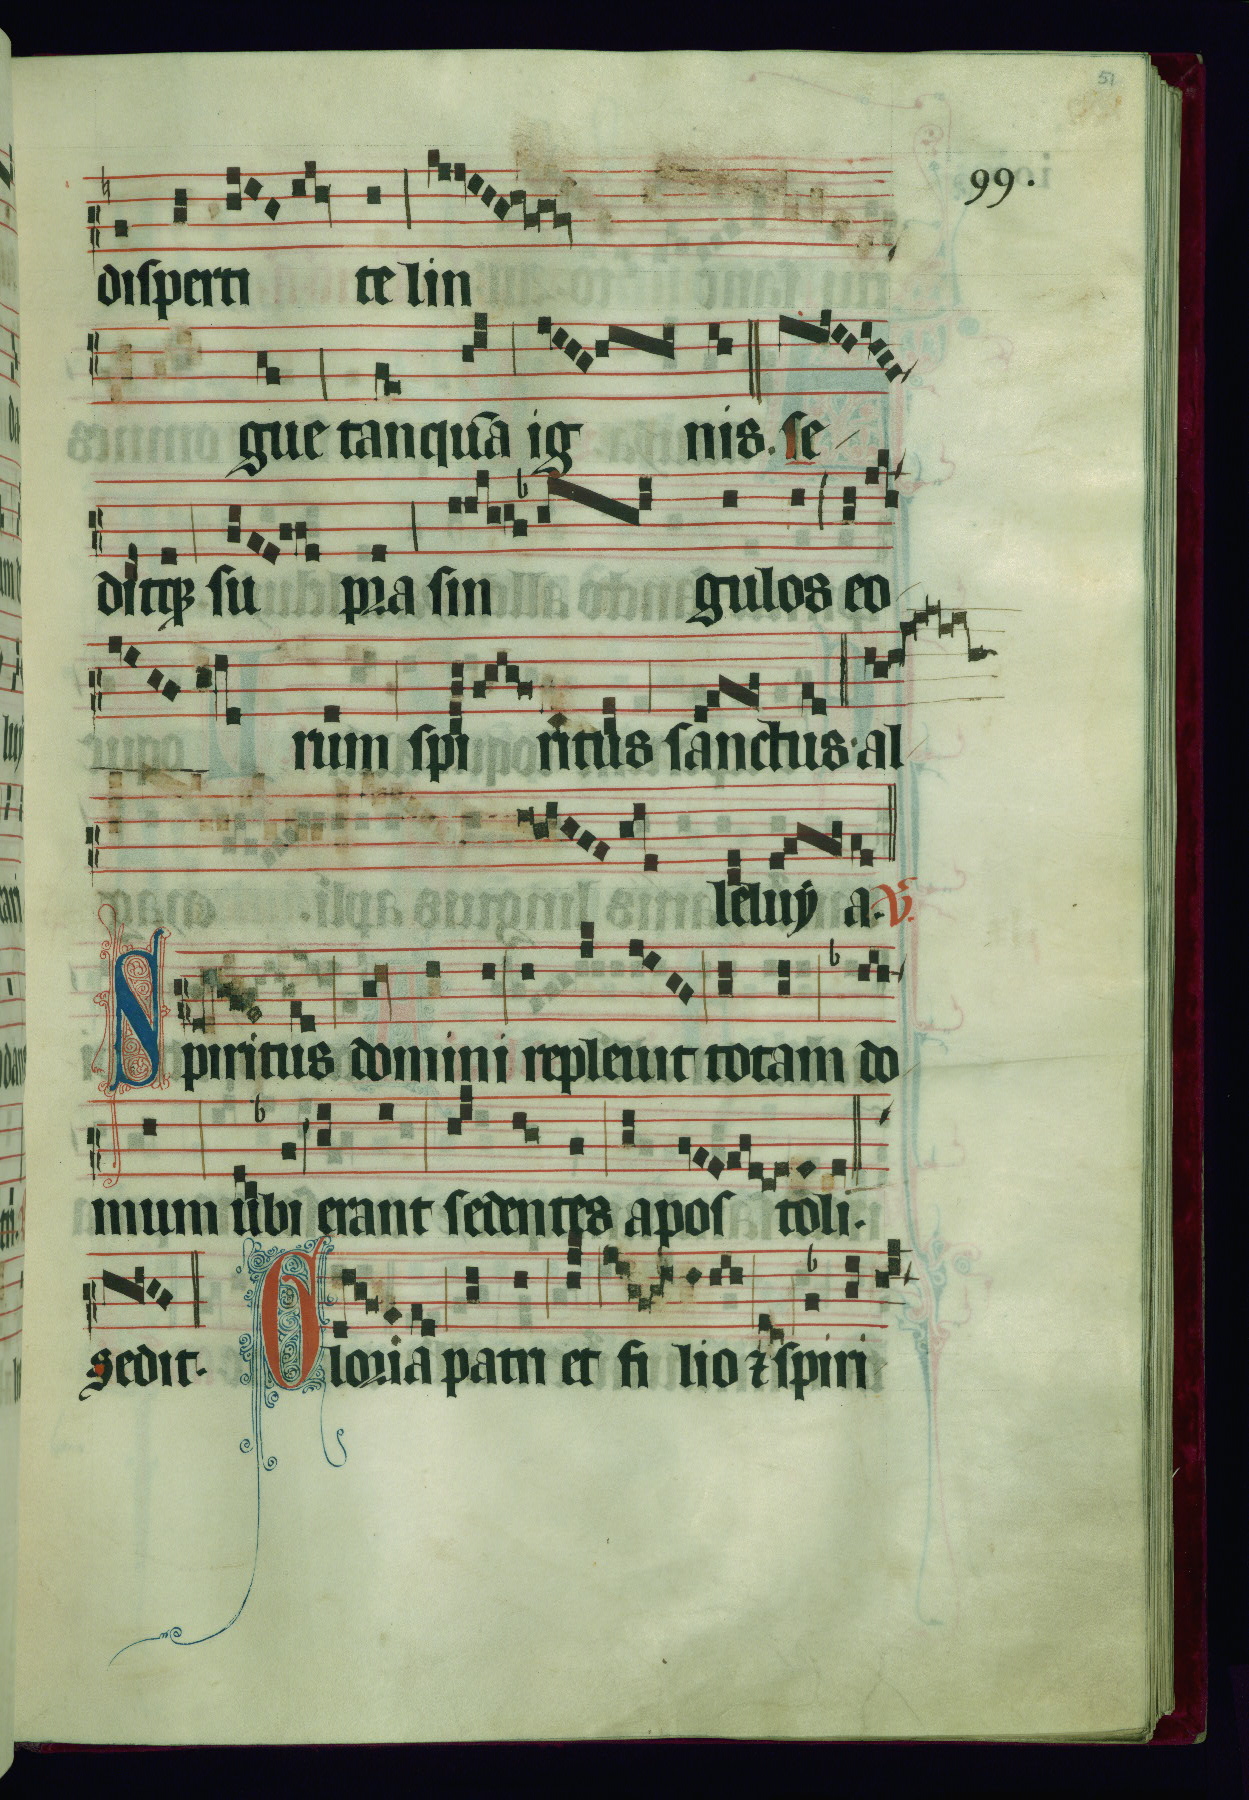 51
99.
disperti te lin
gue tanquā ig nis. se
ditqꝫ su pra sin gulos eo
rum spi ritus sanctus. al
leluy a. ℣.
Spiritus domini repleuit totam do
mum ubi erant sedentes apos toli.
sedit. Gloria patri et fi lio ⁊ spiri